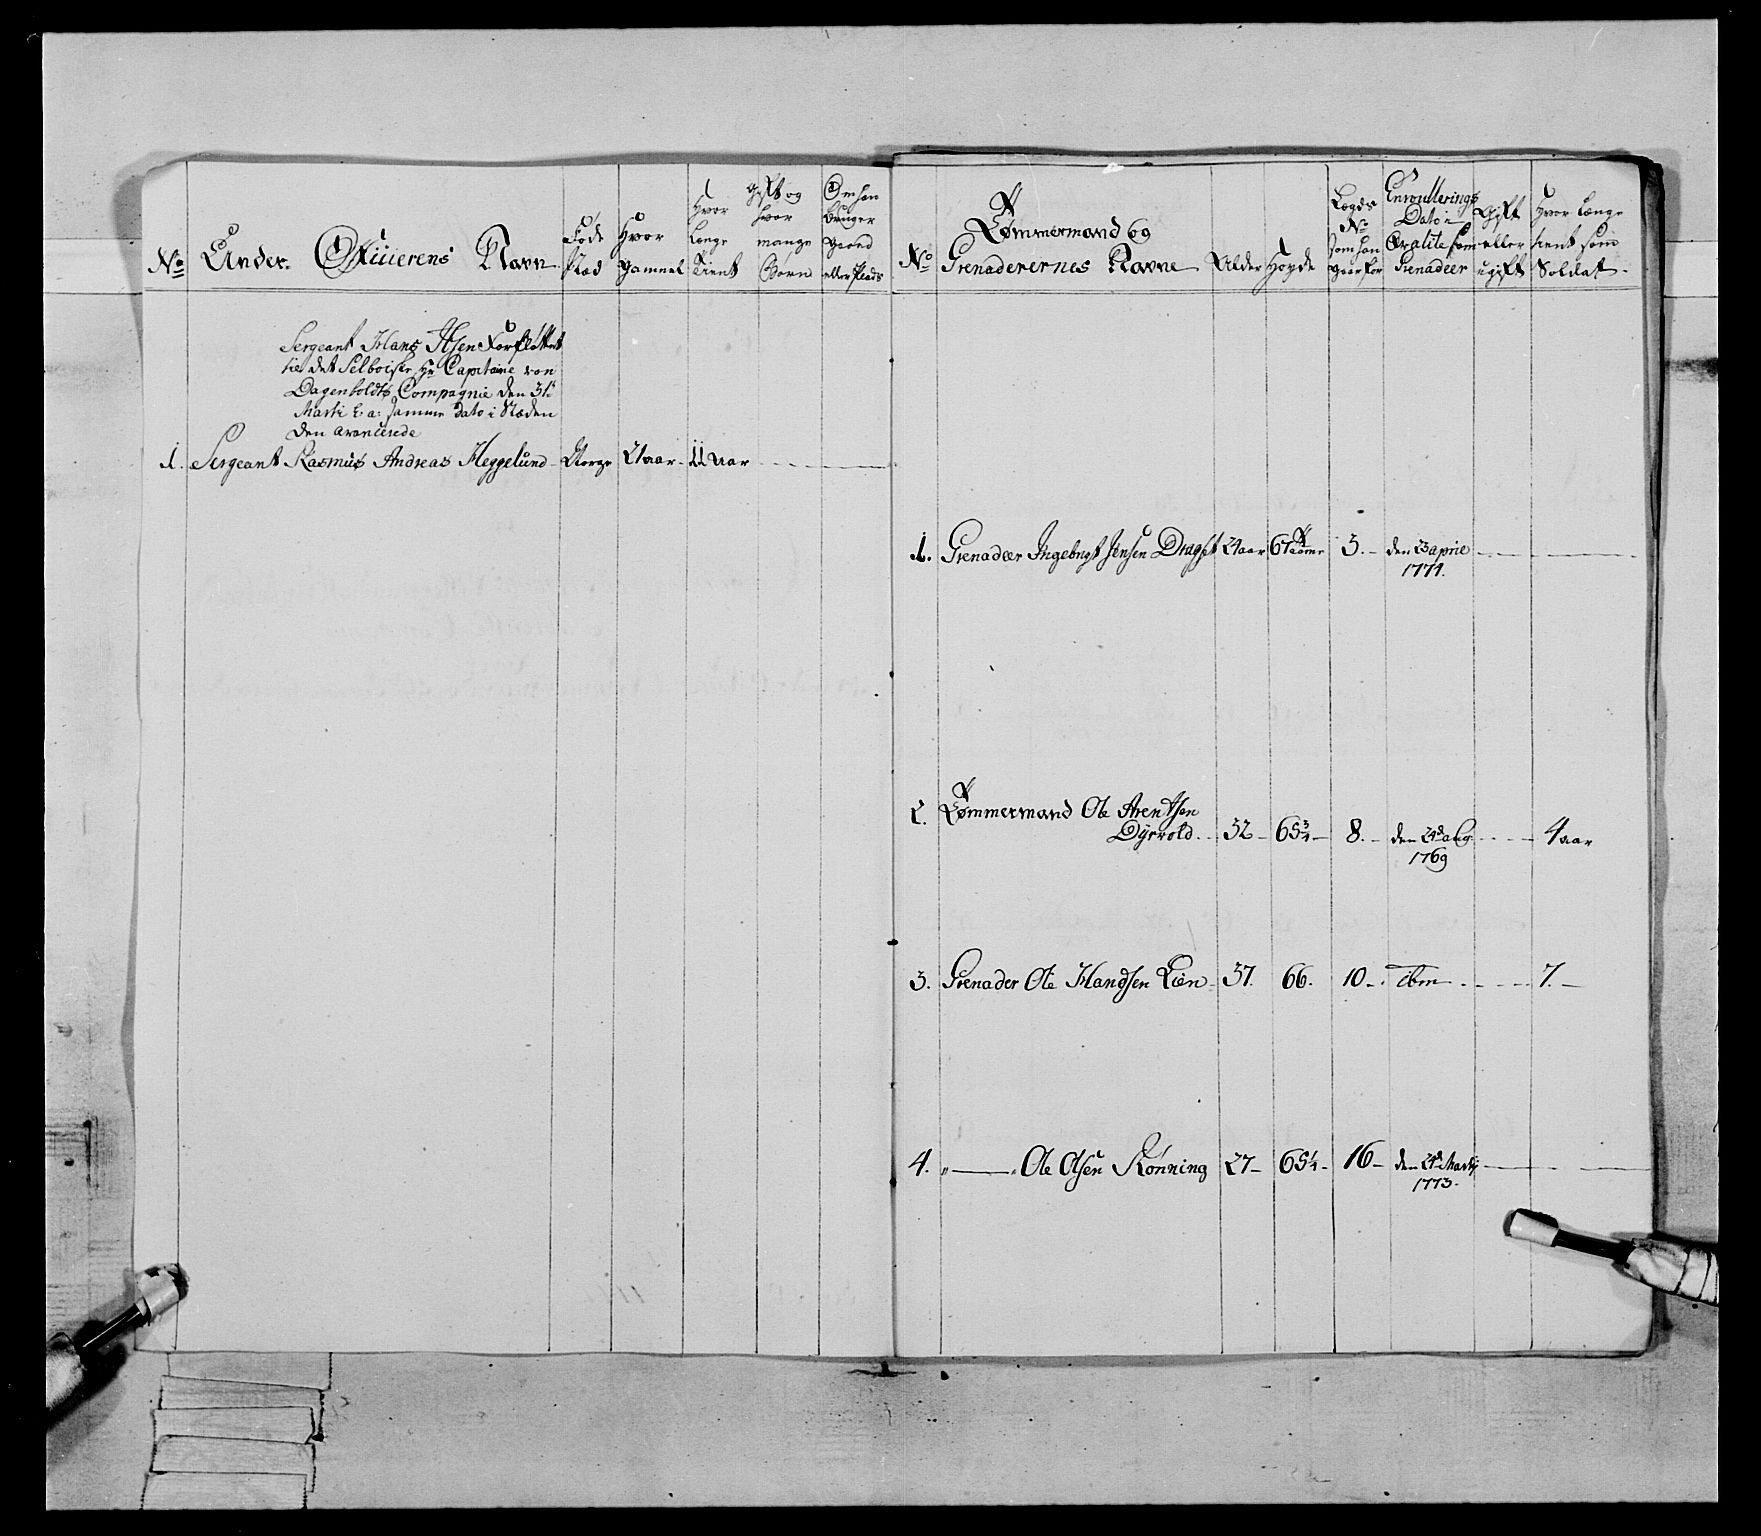 No
Under Officierens Navn
Føde
stæd
Hvor
gamnel
Hvor
længe
tient
Gift og
hvor
mange
Børn
Om han
Bruger
Gaard
eller Plads
Sergeant Hans Olsen Forfløttet
til det Selboiske Hr Capitaine von
Dagenboldts Compagnie den 31te
Marti h: a: samme Dato i Stæden
den avancerede
1. Sergeant Rasmus Andreas Heggelund Norge 21 aar 11 aar
No
Tømmermand og
Grenaderernes Navne
Alder
Høyde
Lægds
No
som han
gaar for
Enroullerings
Dato i
Qvalite som
Grenadeer
Gift
eller
ugift
Hvor længe
tient som
Soldat
1. Grenadeer Ingebrigt Jensen Dragset 24 aar 67 Tomer 3. den 23 aprie
1771.
2. Tømmermand Ole Arentsen
Dyrvold 32 65 3/4 8. den 24de Aug 4 aar
1769
3. Grenader Ole Handsen Lien 37. 66. 10 ibm 7.
4. " — " Ole Olsen Rønning 27 65 1/4 16 den 24de Martij
1773.